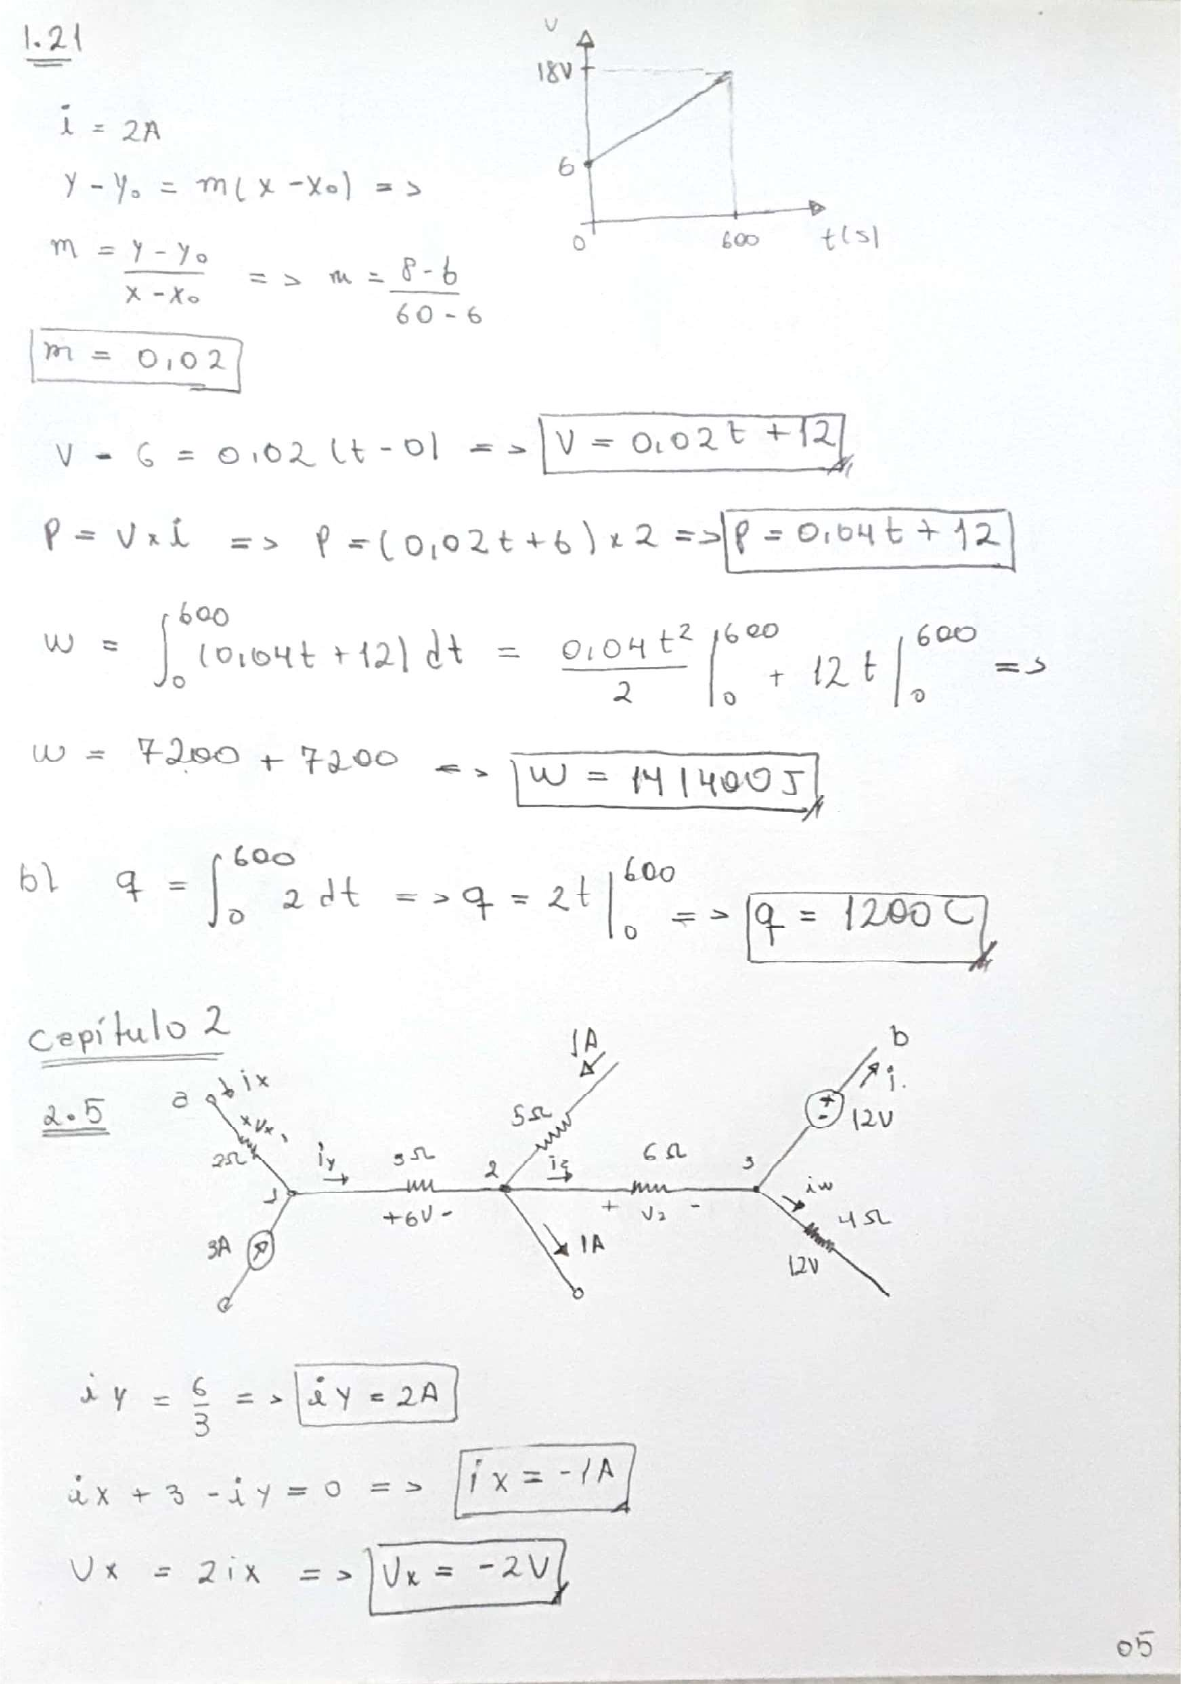 1.21
V
18V
6
0
600
t(s)
i = 2A
y - y₀ = m(x - x₀) =>
m = y - y₀ / x - x₀ => m = 8-6 / 60-6
m = 0,02
V - 6 = 0,02 (t - 0) => V = 0,02t + 12
P = V x i => P = (0,02t + 6) x 2 => P = 0,04t + 12
w = ∫₀⁶⁰⁰ (0,04t + 12) dt = 0,04t²/2 |₀⁶⁰⁰ + 12t |₀⁶⁰⁰ =>
w = 7200 + 7200 => W = 14400J
b) q = ∫₀⁶⁰⁰ 2 dt => q = 2t |₀⁶⁰⁰ => q = 1200C
Capítulo 2
2.5
a ix
+Vx-
2Ω
1
3A
iy
3Ω
+6V-
2
5Ω
1A
iz
6Ω
+ Vz -
1A
3
b
i
+ -
12V
iw
4Ω
12V
iy = 6/3 => iy = 2A
ix + 3 - iy = 0 => ix = -1A
Vx = 2ix => Vx = -2V
05